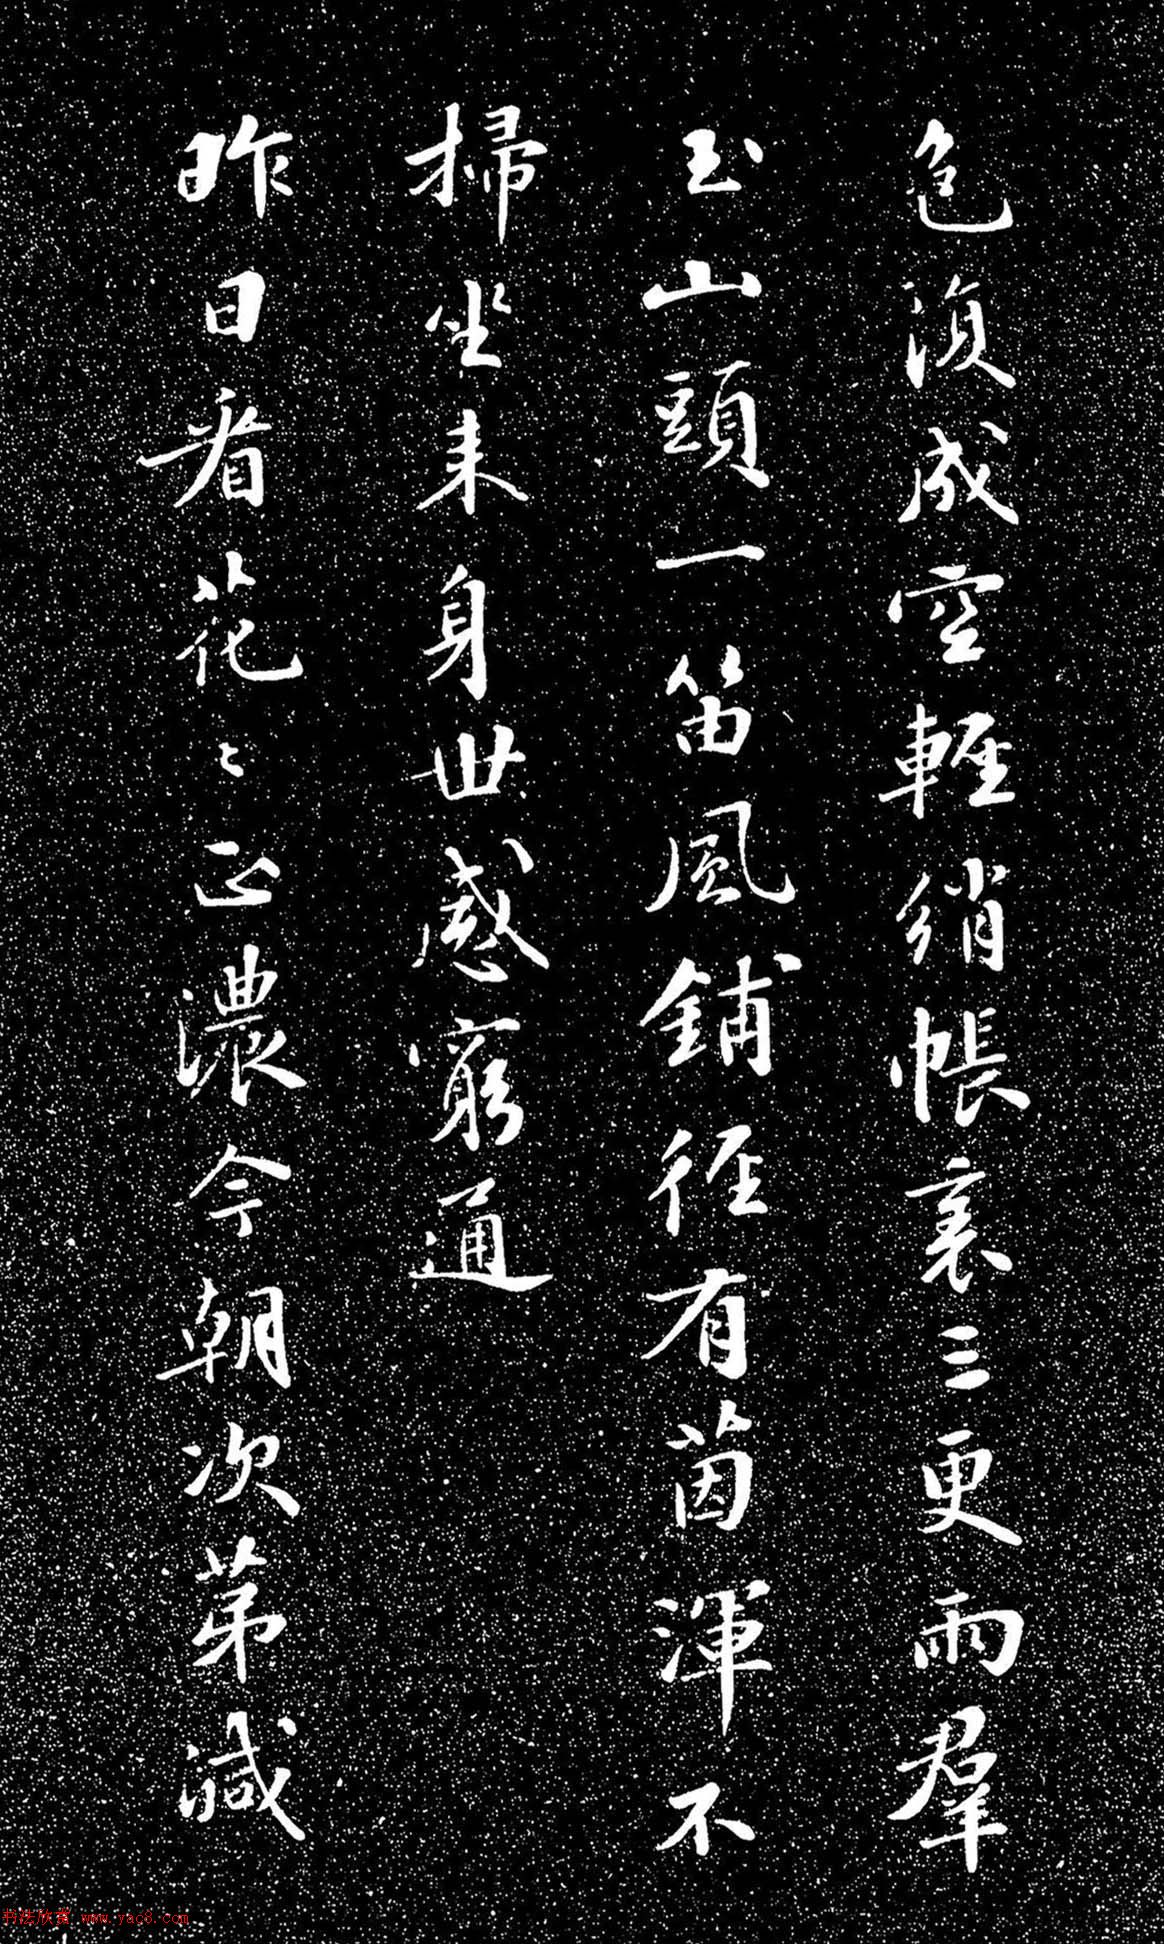 色須成空輕綃帳裏三更雨羣
玉山頭一笛風鋪徑有茵渾不
掃坐來身世感窮通
昨日看花〻正濃今朝次第減
书法欣赏 www.yac8.com